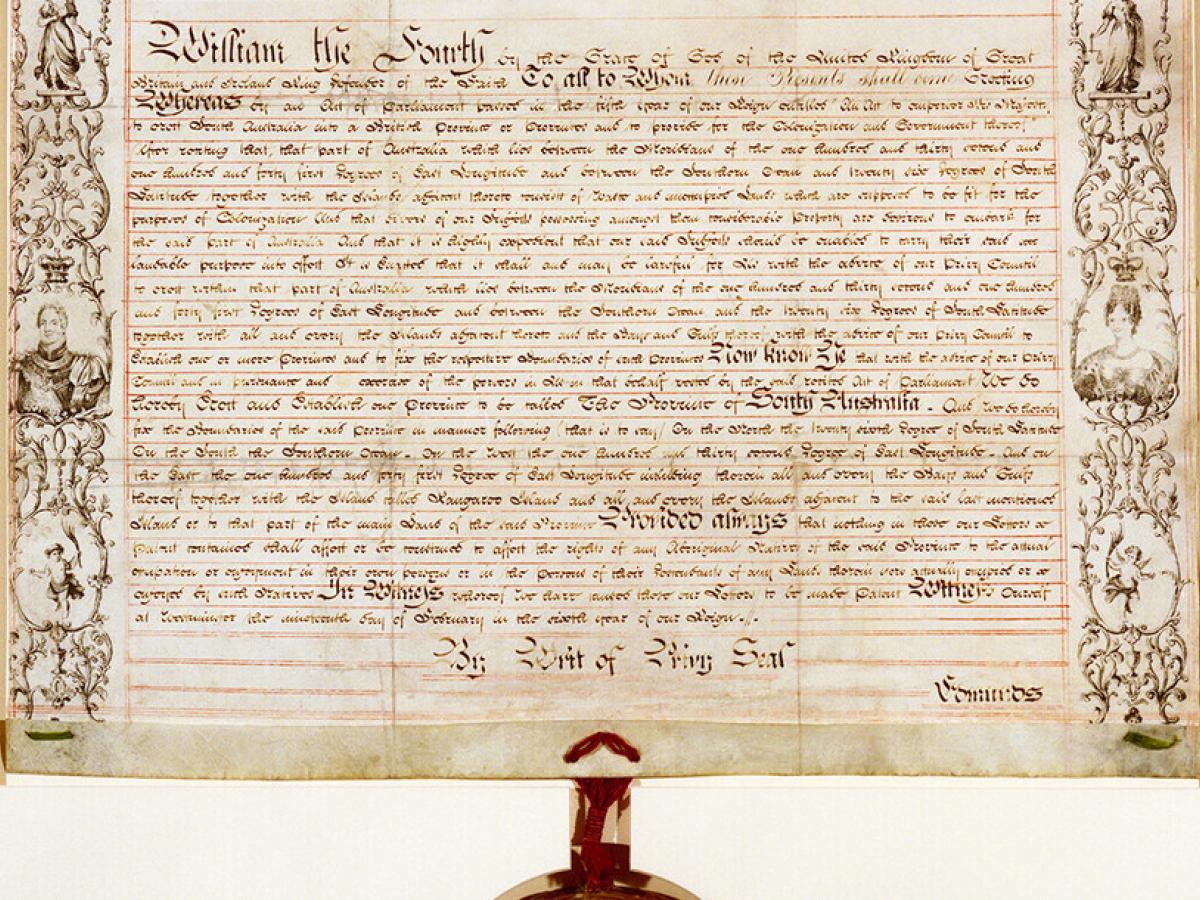 William the Fourth by the Grace of God of the United Kingdom of Great
Britain and Ireland King Defender of the Faith To all to Whom these Presents shall come Greeting
Whereas by an Act of Parliament passed in the fifth year of our Reign entitled "An Act to empower His Majesty
to erect South Australia into a British Province or Provinces and to provide for the Colonization and Government thereof"
After reciting that, that part of Australia which lies between the Meridians of the one hundred and thirty second and
one hundred and forty first degrees of East Longitude and between the Southern Ocean and twenty six degrees of South
Latitude together with the Islands adjacent thereto consist of waste and unoccupied Lands which are supposed to be fit for the
purposes of Colonization And that divers of our Subjects possessing amongst them considerable Property are desirous to embark for
the said part of Australia And that it is highly expedient that our said Subjects should be enabled to carry their said
laudable purpose into effect It is Enacted that it shall and may be lawful for Us with the advice of our Privy Council
to erect within that part of Australia which lies between the Meridians of the one hundred and thirty second and one hundred
and forty first degrees of East Longitude and between the Southern Ocean and the twenty six degrees of South Latitude
together with all and every the Islands adjacent thereto and the Bays and Gulfs thereof with the advice of our Privy Council to
Establish one or more Provinces and to fix the respective Boundaries of such Provinces Now Know Ye that with the advice of our Privy
Council and in pursuance and exercise of the powers in Us in that behalf vested by the said recited Act of Parliament We do
hereby Erect and Establish one Province to be called The Province of South Australia. And we do hereby
fix the Boundaries of the said Province in manner following (that is to say) On the North the twenty sixth degree of South Latitude
On the South the Southern Ocean - On the West the one hundred and thirty second degree of East Longitude - And on
the East the one hundred and forty first degree of East Longitude including therein all and every the Bays and Gulfs
thereof together with the Island called Kangaroo Island and all and every the Islands adjacent to the said last mentioned
Island or to that part of the main Land of the said Province Provided always that nothing in those our Letters
Patent contained shall affect or be construed to affect the rights of any Aboriginal Natives of the said Province to the actual
occupation or enjoyment in their own persons or in the persons of their descendants of any Lands therein now actually occupied or
enjoyed by such Natives In Witness whereof We have caused these our Letters to be made Patent Witness Ourself
at Westminster the nineteenth day of February in the sixth year of our Reign
By Writ of Privy Seal
Edmunds